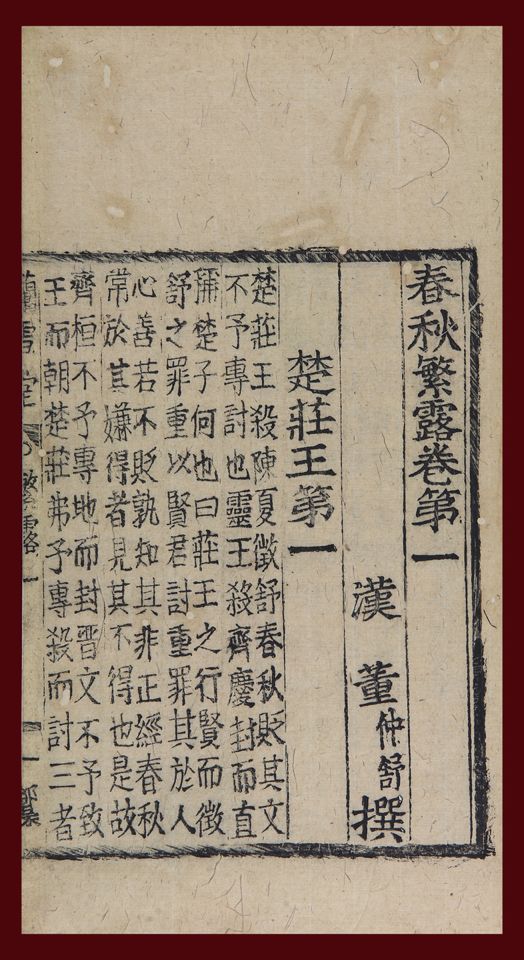 春秋繁露卷第一
漢 董仲舒 撰
楚莊王第一
楚莊王殺陳夏徵舒春秋貶其文
不予專討也靈王殺齊慶封而直
稱楚子何也曰莊王之行賢而徵
舒之罪重以賢君討重罪其於人
心善若不貶孰知其非正經春秋
常於其嫌得者見其不得也是故
齊桓不予專地而封晉文不予致
王而朝楚莊弗予專殺而討三者
蘭雪堂 繁露一 一